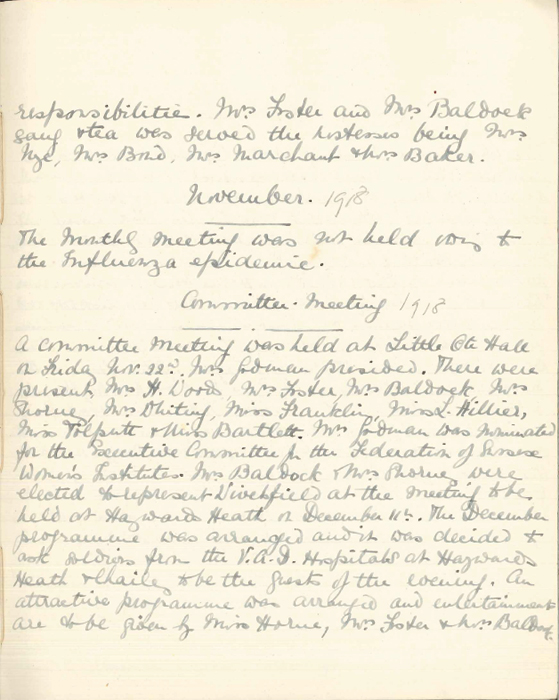 responsibilitie. Mrs Foster and Mrs Baldock
sang & tea was served the hostesses being Mrs
Nye, Mrs Bond, Mrs Marchant & Mrs Baker.
November. 1918
The Monthly Meeting was not held owing to
the Influenza epidemic.
Committee Meeting 1918
A committee Meeting was held at Little Ote Hall
on Friday Nov. 22nd. Mrs Godman presided. There were
present, Mrs H. Woods Mrs Foster, Mrs Baldock, Mrs
Thorne, Mrs Whiting, Miss Franklin, Miss L. Hillier,
Miss Tolputt & Miss Bartlett. Mrs Godman was nominated
for the Executive Committee for the Federation of Sussex
Women's Institutes. Mrs Baldock & Mrs Thorne were
elected to represent Wivelsfield at the Meeting to be
held at Haywards Heath on December 11th. The December
programme was arranged and it was decided to
ask soldiers from the V.A.D. Hospitals at Haywards
Heath & Chailey to be the guests of the evening. An
attractive programme was arranged and entertainments
are to be given by Miss Horne, Mrs Foster & Mrs Baldock.